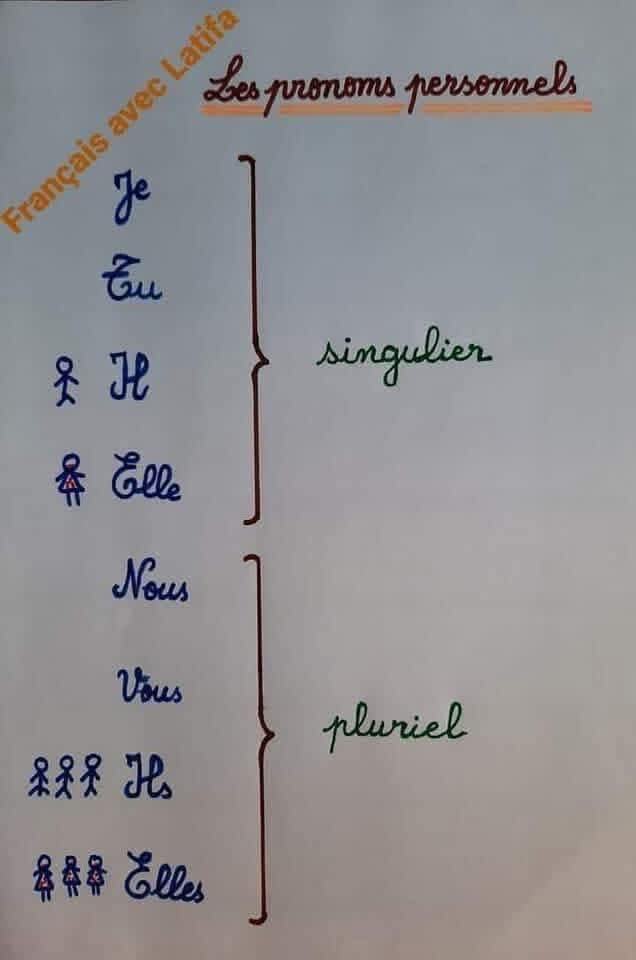 Français avec Latifa
Les pronoms personnels
Je
Tu
Il
Elle
singulier
Nous
Vous
Ils
Elles
pluriel